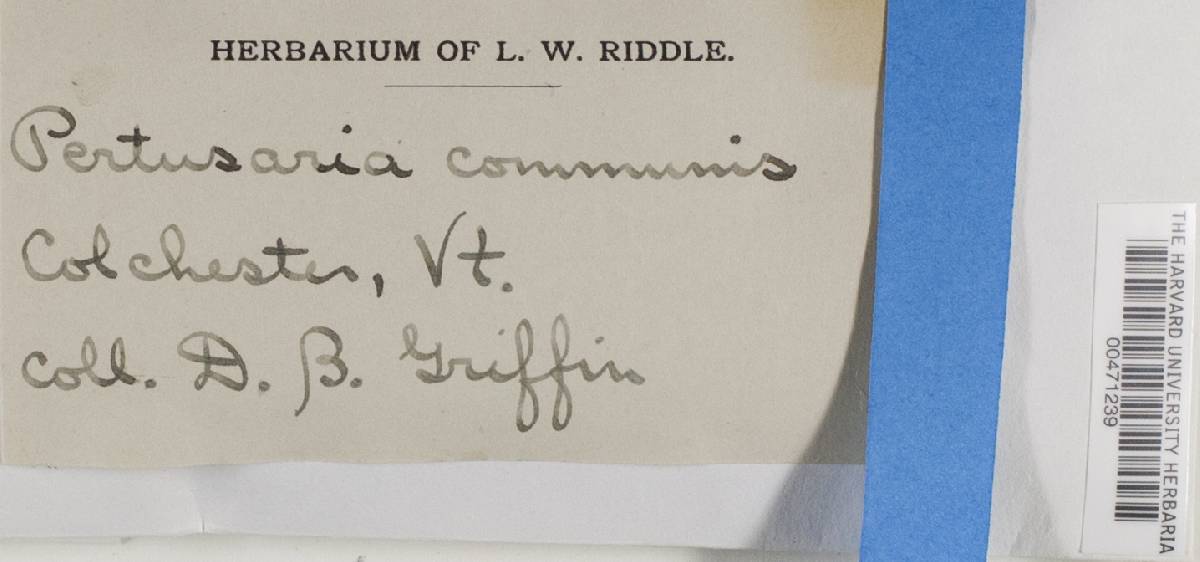 HERBARIUM OF L. W. RIDDLE.
Pertusaria communis
Colchester, Vt.
coll. D. B. Griffin
THE HARVARD UNIVERSITY HERBARIA
00471239